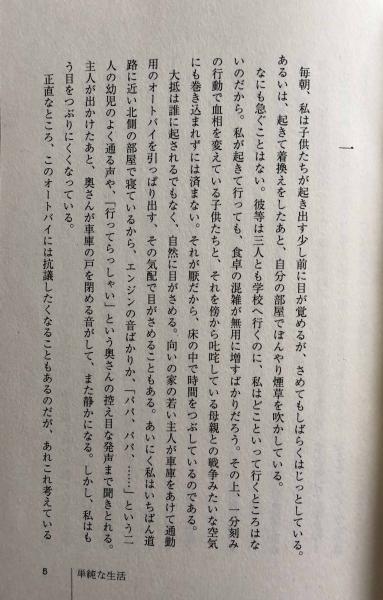 一
毎朝、私は子供たちが起き出す少し前に目が覚めるが、さめてもしばらくはじっとしている。
あるいは、起きて着換えをしたあと、自分の部屋でぼんやり煙草を吹かしている。
なにも急ぐことはない。彼等は三人とも学校へ行くのに、私はどこといって行くところはな
いのだから。私が起きて行っても、食卓の混雑が無用に増すばかりだろう。その上、一分刻み
の行動で血相を変えている子供たちと、それを傍から叱咤している母親との戦争みたいな空気
にも巻き込まれずには済まない。それが厭だから、床の中で時間をつぶしているのである。
大抵は誰に起されるでもなく、自然に目がさめる。向いの家の若い主人が車庫をあけて通勤
用のオートバイを引っぱり出す、その気配で目がさめることもある。あいにく私はいちばん道
路に近い北側の部屋で寝ているから、エンジンの音ばかりか、「パパ、パパ、……」という二
人の幼児のよく通る声や、「行ってらっしゃい」という奥さんの控え目な発声まで聞きとれる。
主人が出かけたあと、奥さんが車庫の戸を閉める音がして、また静かになる。しかし、私はも
う目をつぶりにくくなっている。
正直なところ、このオートバイには抗議したくなることもあるのだが、あれこれ考えている
5
単純な生活